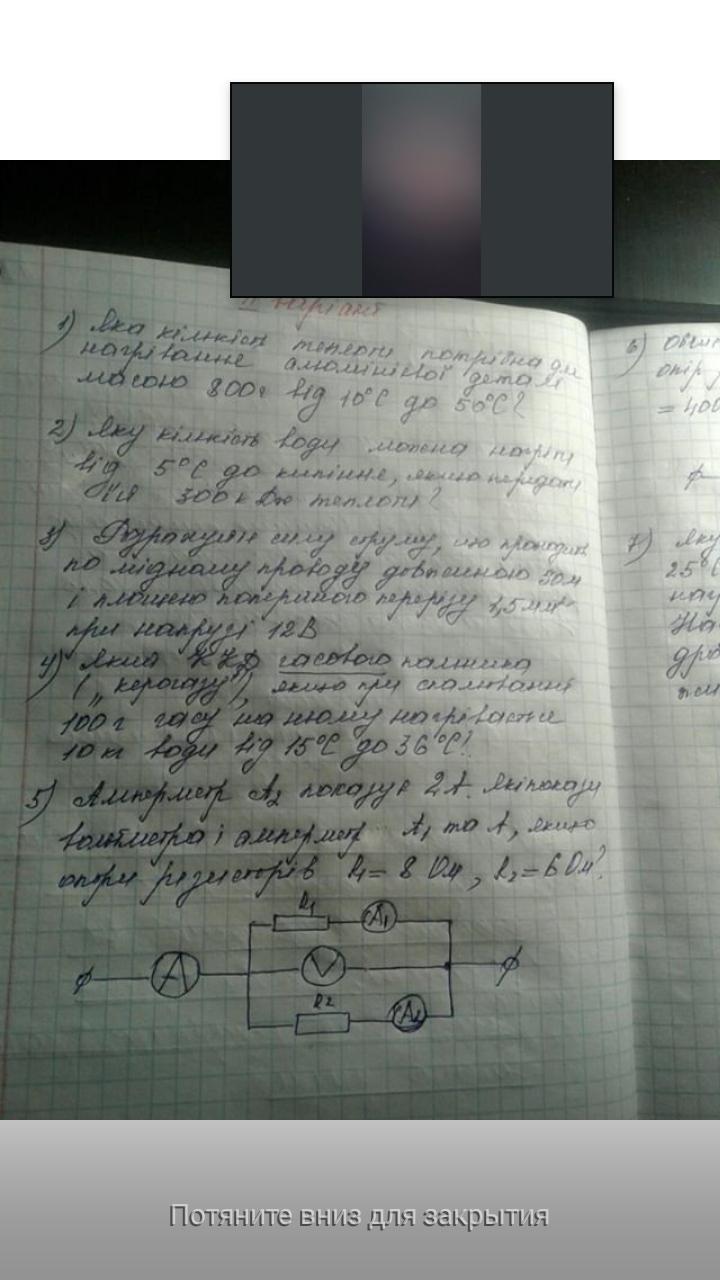 II варіант
1) Яка кількість теплоти потрібна для
нагрівання алюмінієвої деталі
масою 800г від 10°C до 50°C?
2) Яку кількість води можна нагріти
від 5°C до кипіння, якщо передати
їй 300 кДж теплоти?
3) Розрахуйте силу струму, що проходить
по мідному проводу довжиною 50м
і площею поперечного перерізу 1,5мм²
при напрузі 12В
4) Який ККД гасового пальника
(„керогазу"), якщо при спалюванні
100г гасу на ньому нагрівається
10 кг води від 15°C до 36°C?
5) Амперметр A₂ показує 2А. Які покази
вольтметра і амперметр A₁ та A, якщо
опори резисторів R₁= 8 Ом, R₂=6 Ом?
R₁ A₁
A V
R₂ A₂
6)
опір
= 400
7) Яку
25°C
На
Потяните вниз для закрытия